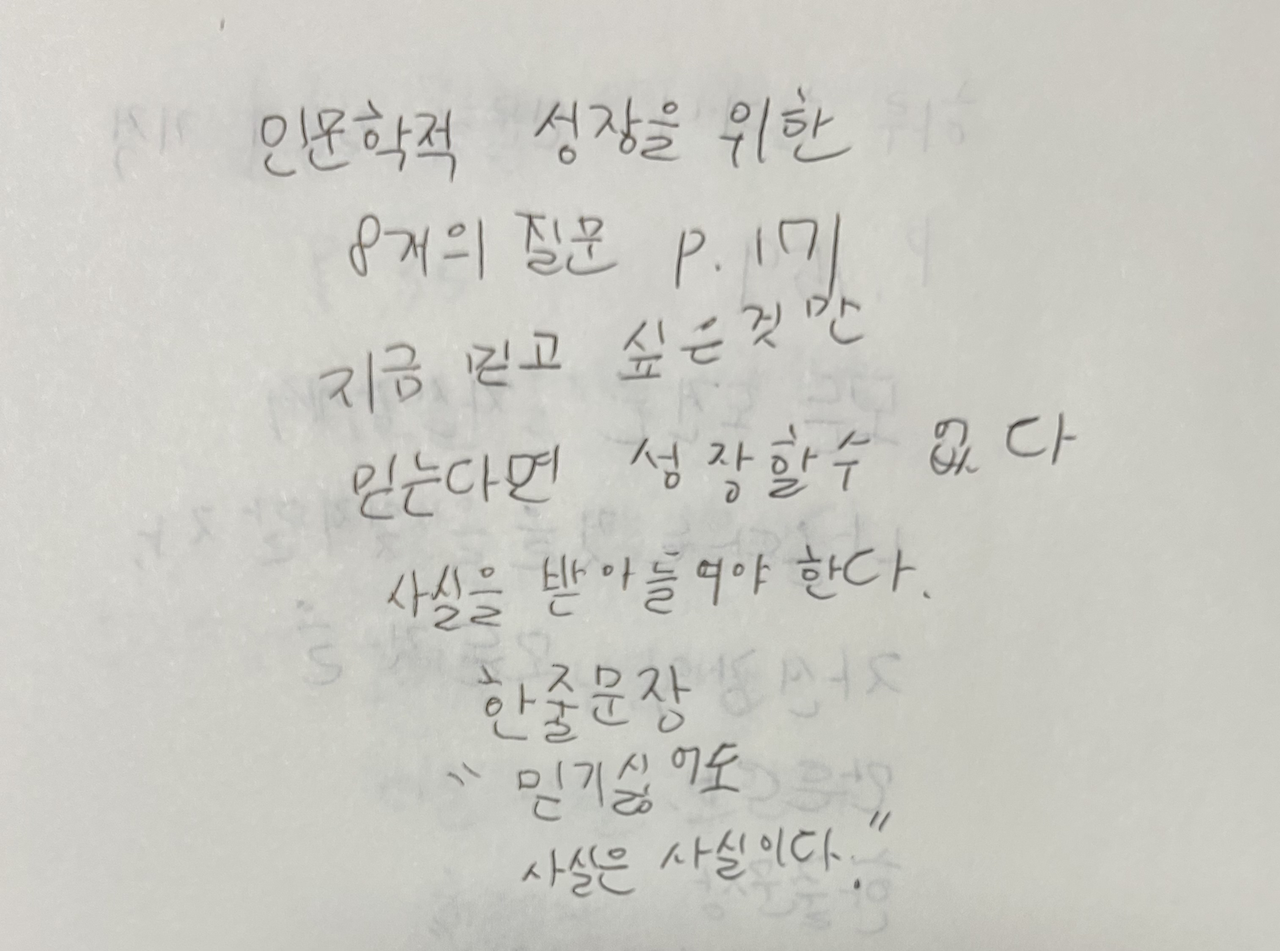 인문학적 성장을 위한
8개의 질문 p.171
지금 믿고 싶은것만
믿는다면 성장할수 없다
사실을 받아들여야 한다.
한줄문장
"믿기싫어도
사실은 사실이다."